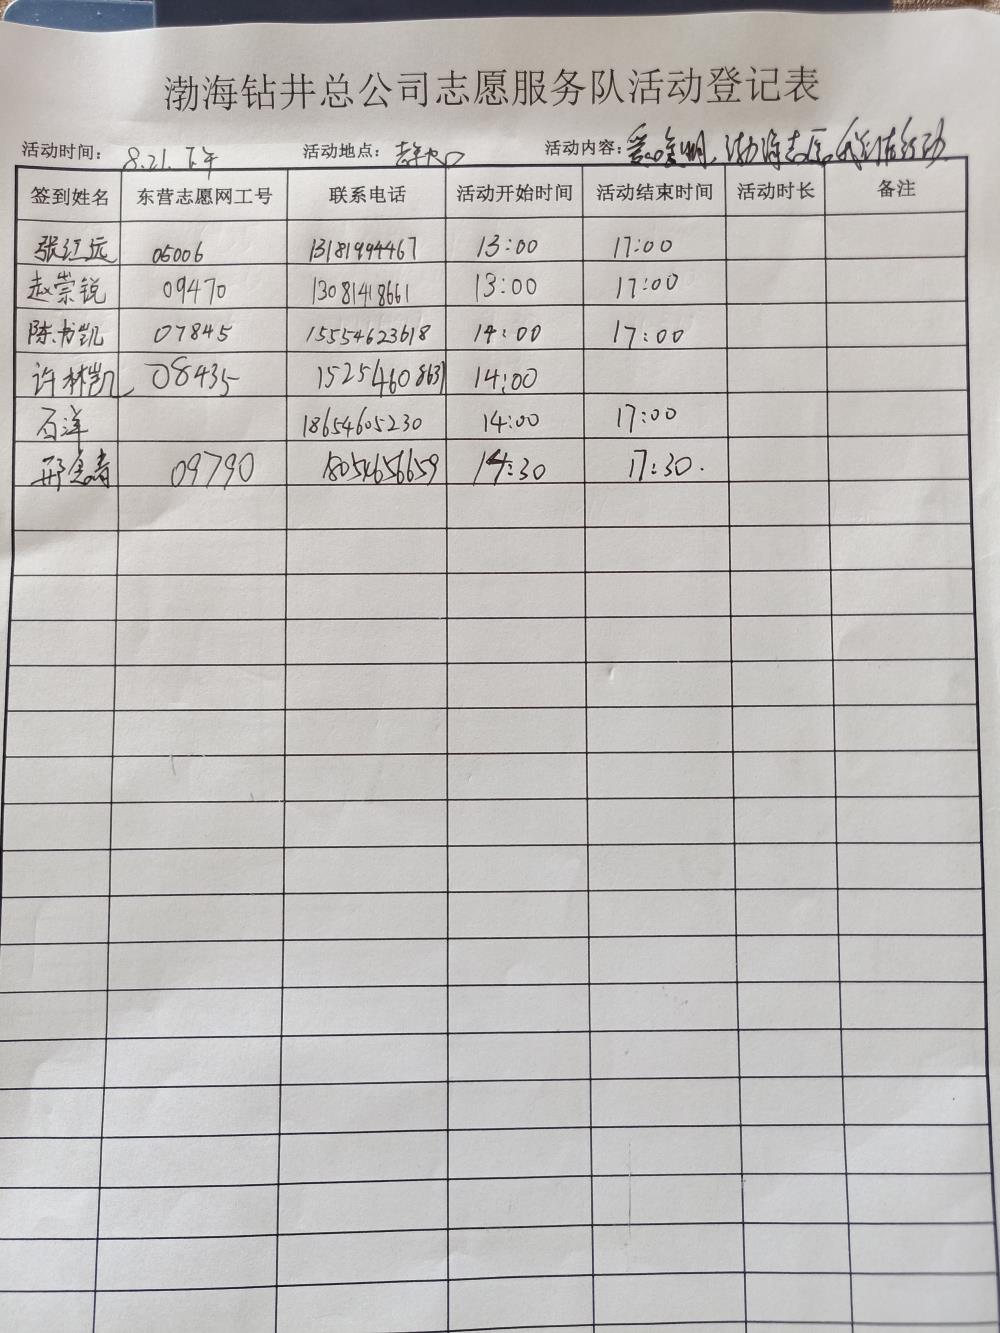 渤海钻井总公司志愿服务队活动登记表
活动时间: 8.21 下午 活动地点: 活动内容: 渤海志愿 我们在行动
签到姓名 东营志愿网工号 联系电话 活动开始时间 活动结束时间 活动时长 备注
张江远 05006 13181994467 13:00 17:00
赵崇锐 09470 13081418661 13:00 17:00
陈书凯 07845 15554623618 14:00 17:00
许林凯 08435 15254608637 14:00
石洋 18654605230 14:00 17:00
邢 09790 18054656659 14:30 17:30.